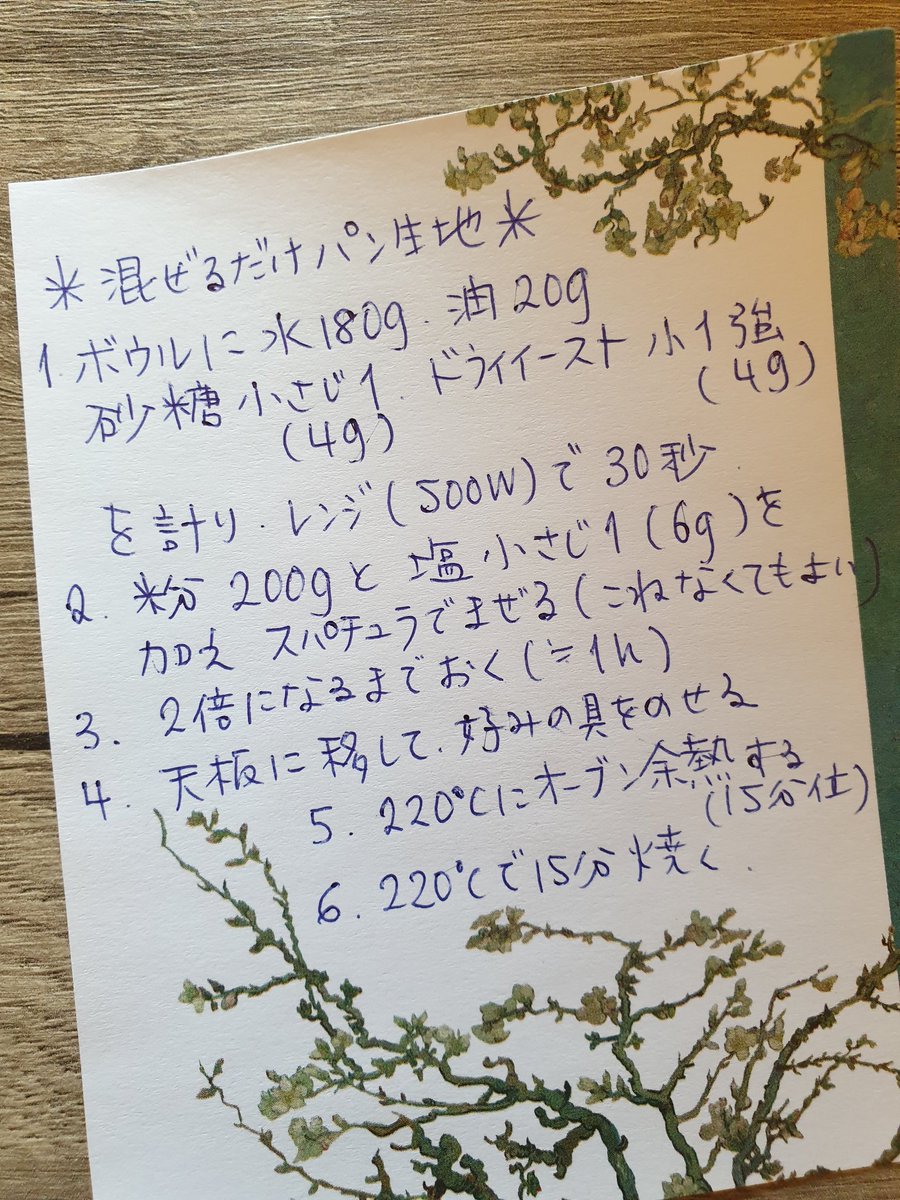 ＊混ぜるだけパン生地＊
1. ボウルに水180g. 油20g
砂糖小さじ1. ドライイースト 小1強
(4g) (4g)
を計り. レンジ(500W)で30秒.
2. 米粉 200gと 塩小さじ1(6g)を
加え スパチュラでまぜる(こねなくてもよい)
3. 2倍になるまでおく(≒1h)
4. 天板に移して、好みの具をのせる
5. 220℃にオーブン余熱する
(15分位)
6. 220℃で15分焼く.